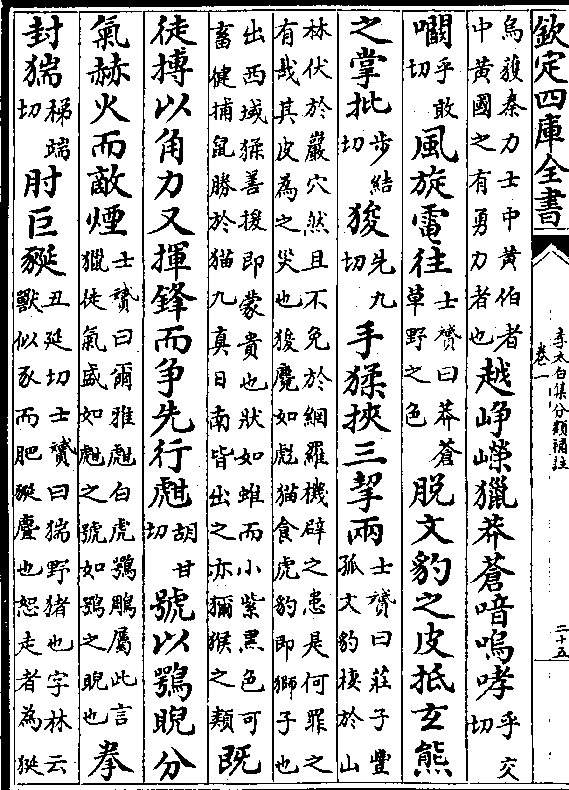 欽定四庫全書
李太白集分類補註
卷一
二十五
烏獲秦力士中黃伯者
中黃國之有勇力者也
越崢嶸獵莽蒼喑嗚哮乎交切
㘚乎敢切風旋雷往士贇曰莽蒼草野之色脫文豹之皮抵玄熊
之掌批步結切狻先九切手猱挾三挈兩士贇曰莊子豐孤文豹棲於山
林伏於巖穴然且不免於網羅機辟之患是何罪之
有哉其皮為之災也狻麑如彪猫食虎豹即獅子也
出西域猱善援即蒙貴也狀如蜼而小紫黑色可
畜健捕鼠勝於猫九真日南皆出之亦獼猴之類
既
徒搏以角力又揮鋒而爭先行甝胡甘切號以鶚睨分
氣赫火而敵煙士贇曰爾雅甝白虎鶚鵰屬此言獵徒氣盛如甝之號如鶚之睨也拳
封猯稊端切肘巨狿丑延切士贇曰猯野猪也字林云獸似豕而肥狿麈也怒走者為狿